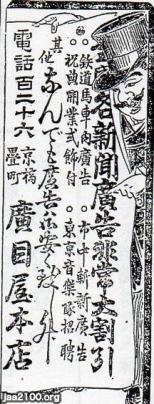 各新聞廣告非常大割引
○鉄道馬車内廣告 ○市中斬新廣告
○祝賀開業式飾付 ○東京音樂隊招聘
其他なんでも廣告
電話百二十六 京橋畳町 廣目屋本店
jaa2100.org